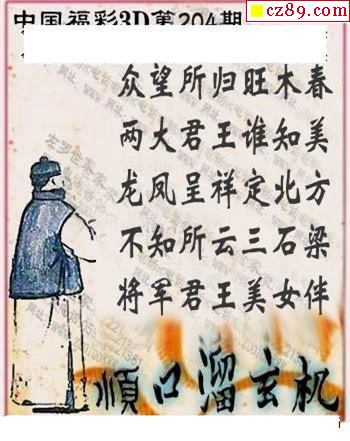 cz89.com
中国福彩3D第204期
众望所归旺木春
两大君王谁知美
龙凤呈祥定北方
不知所云三石梁
将军君王美女伴
顺口溜玄机